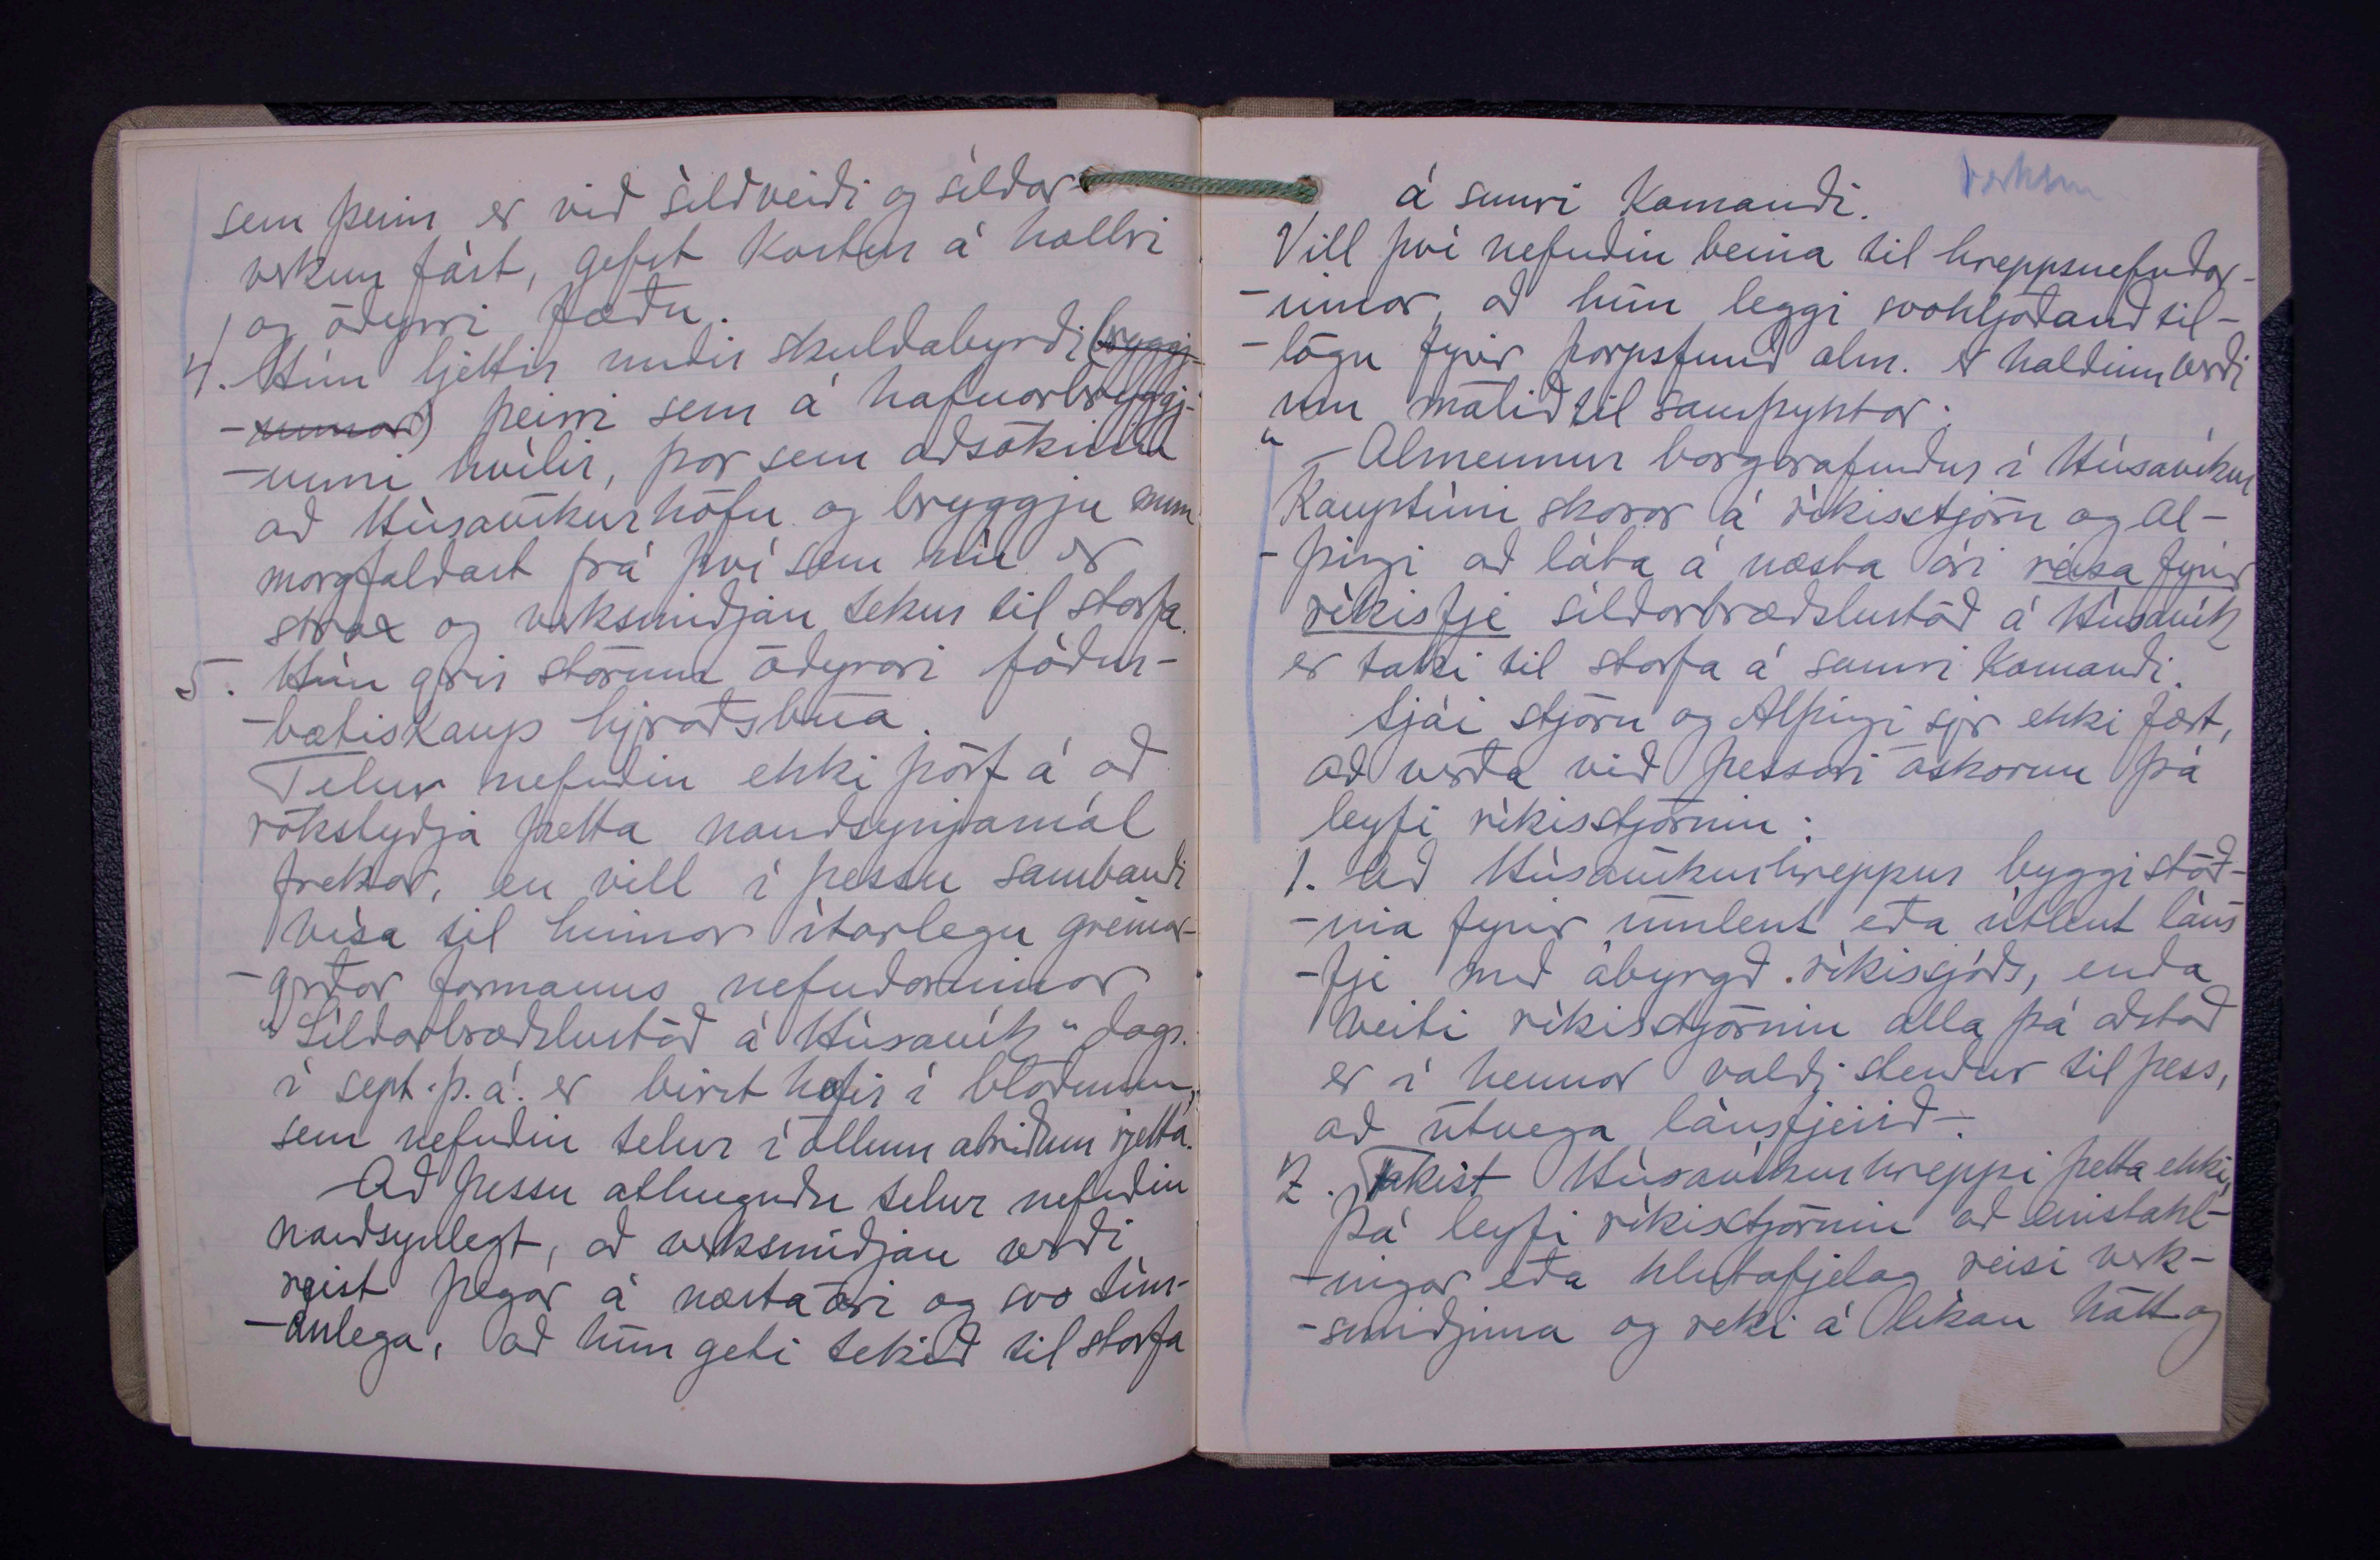 sem þeim er við síldveiði og síldar-
verkun fást, gefst kostur á hollri
og ódýrri fæðu.
4. Hún ljettir undir skuldabyrði (bryggj-
-unnar) þeirri sem á hafnarbryggj-
-unni hvílir, þar sem aðsóknin
að Húsavíkurhöfn og bryggju mun
margfaldast frá því sem nú er
strax og verksmiðjan tekur til starfa.
5. Hún gerir stórum ódýrari fóður-
-bætiskaup hjeraðsbúa.
Telur nefndin ekki þörf á að
rökstyðja þetta nauðsynjamál
frekar, en vill í þessu sambandi
vísa til hinnar ítarlegu greinar-
-gerðar formanns nefndarinnar
"Síldarbræðslustöð á Húsavík" dags.
í sept. þ.á. er birst hefir í blöðunum,
sem nefndin telur í öllum atriðum rjetta.
Að þessu athuguðu telur nefndin
nauðsynlegt, að verksmiðjan verði
reist þegar á næsta ári og svo tím-
-anlega, að hún geti tekið til starfa
verksm
á sumri komandi.
Vill því nefndin beina til hreppsnefndar-
-innar, að hún leggi svohljóðand til-
-lögu fyrir þorpsfund alm. er haldinn verði
um málið til samþyktar:
"-Almennur borgarafundur í Húsavíkur
kauptúni skorar á ríkisstjórn og Al-
-þingi að láta á næsta ári reisa fyrir
ríkisfje síldarbræðslustöð á Húsavík
er taki til starfa á sumri komandi.
Sjái stjórn og Alþingi sjer ekki fært,
að verða við þessari áskorun þá
leyfi ríkisstjórnin:
1. Að Húsavíkurhreppur byggi stöð-
-ina fyrir innlent eða útlent láns
-fje með ábyrgð ríkissjóðs, enda
veiti ríkisstjórnin alla þá aðstoð
er í hennar valdi stendur til þess,
að útvega lánsfjeið-.
2. Takist Húsavíkurhreppi þetta ekki,
þá leyfi ríkisstjórnin að einstakl-
-ingar eða hlutafjelag reisi verk-
-smiðjuna og reki á líkan hátt og